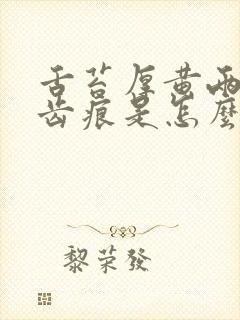 舌苔厚黄两
齿痕是怎麼
黎荣發